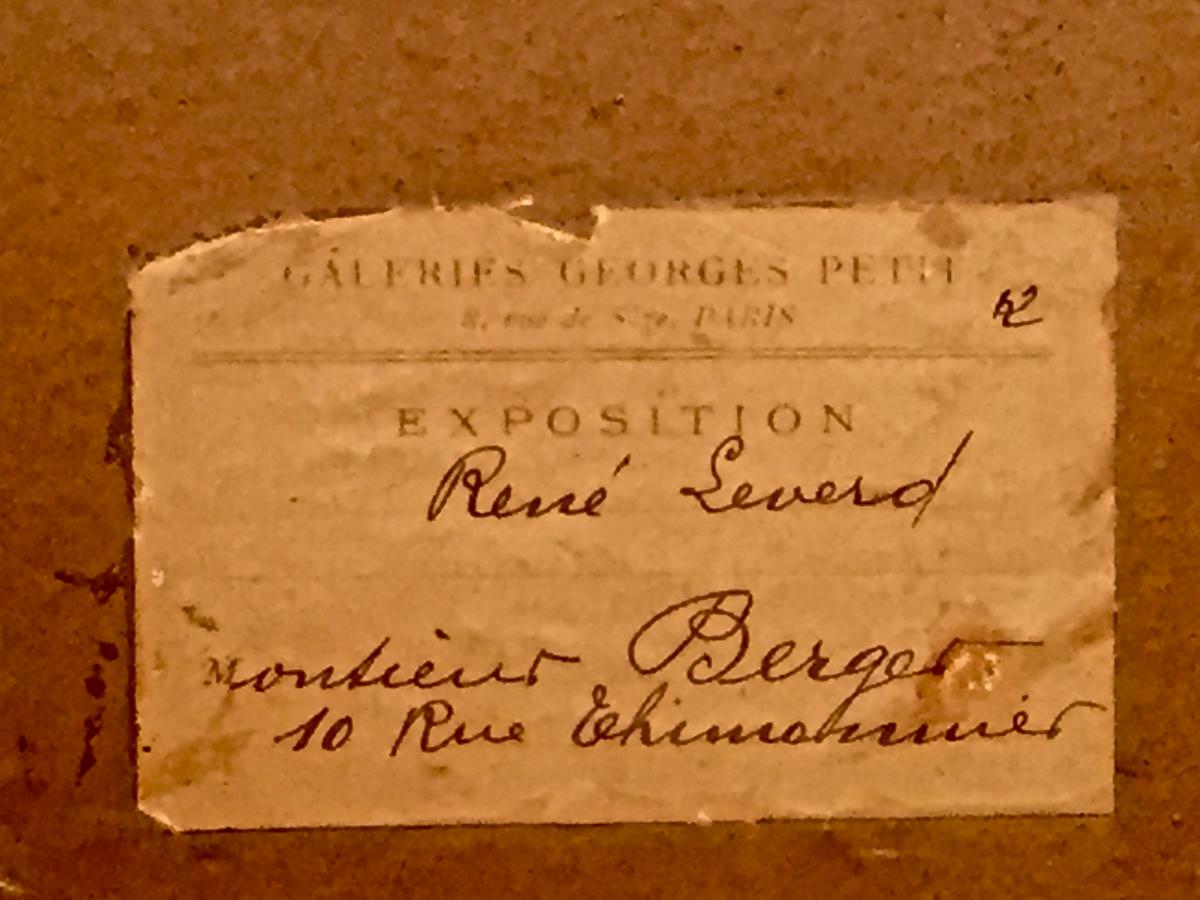 GALERIES GEORGES PETIT
8, rue de Sèze, PARIS
12
EXPOSITION
René Leverd
Monsieur Berger
10 Rue Thimonnier